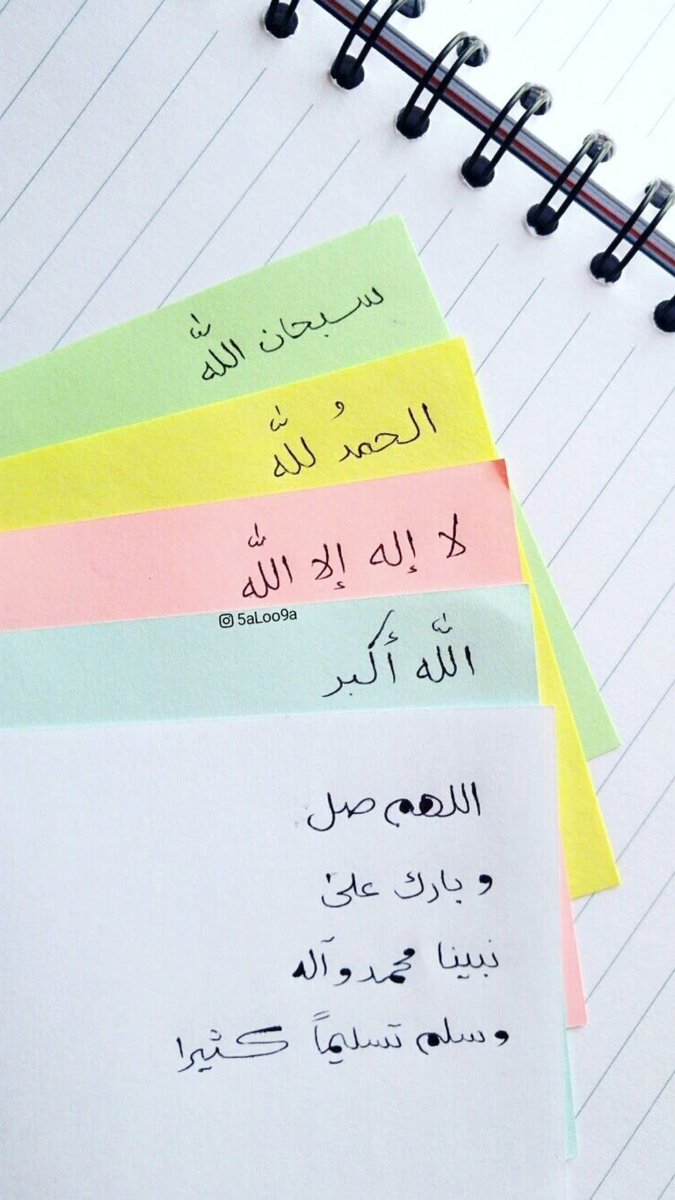 سبحان اللّٰه
الحمدُ للّٰه
لا إله إلا اللّٰه
5aLoo9a
اللّٰه أكبر
اللهم صل
و بارك على
نبينا محمد وآله
وسلم تسليماً كثيرا